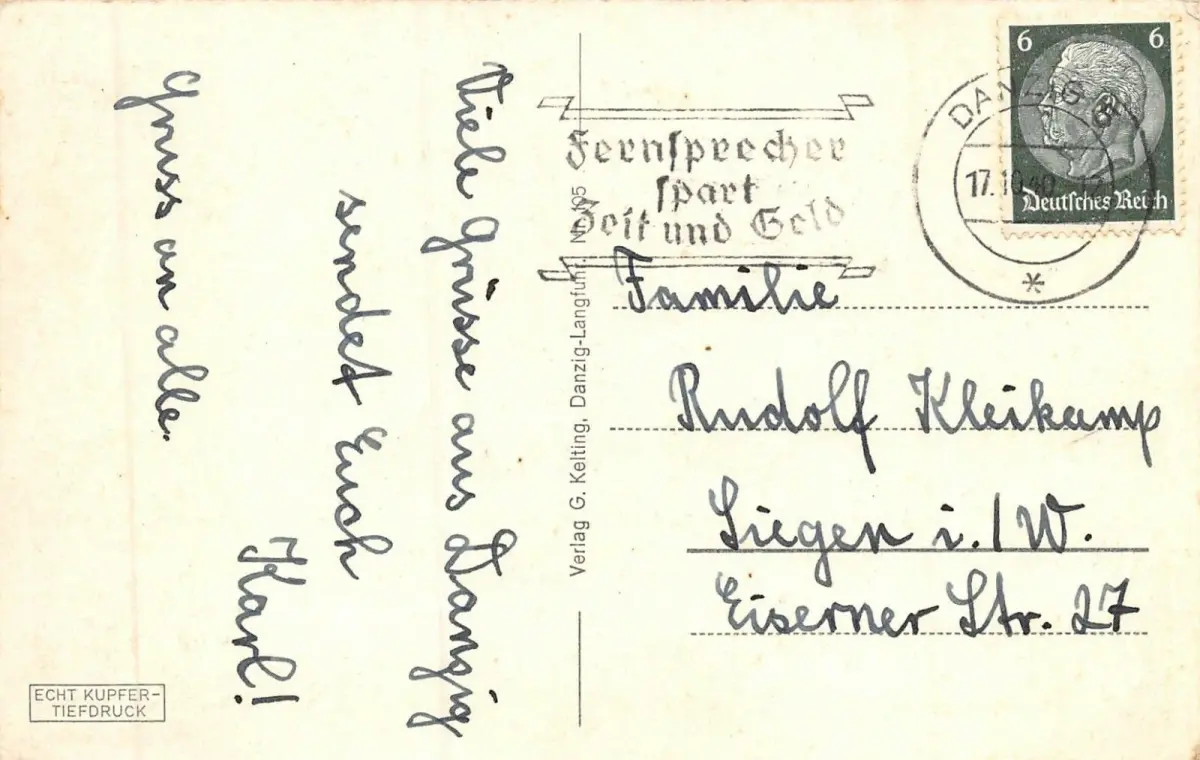 Viele Grüsse aus Danzig
sendet Euch
Karl!
Gruss an alle.
ECHT KUPFER-
TIEFDRUCK
Verlag G. Kelting, Danzig-Langfuhr. Nr. 105
Fernsprecher
spart
Zeit und Geld
DANZIG
17.10.40
6 6
Deutsches Reich
Familie
Rudolf Kleikamp
Siegen i./W.
Eiserner Str. 27